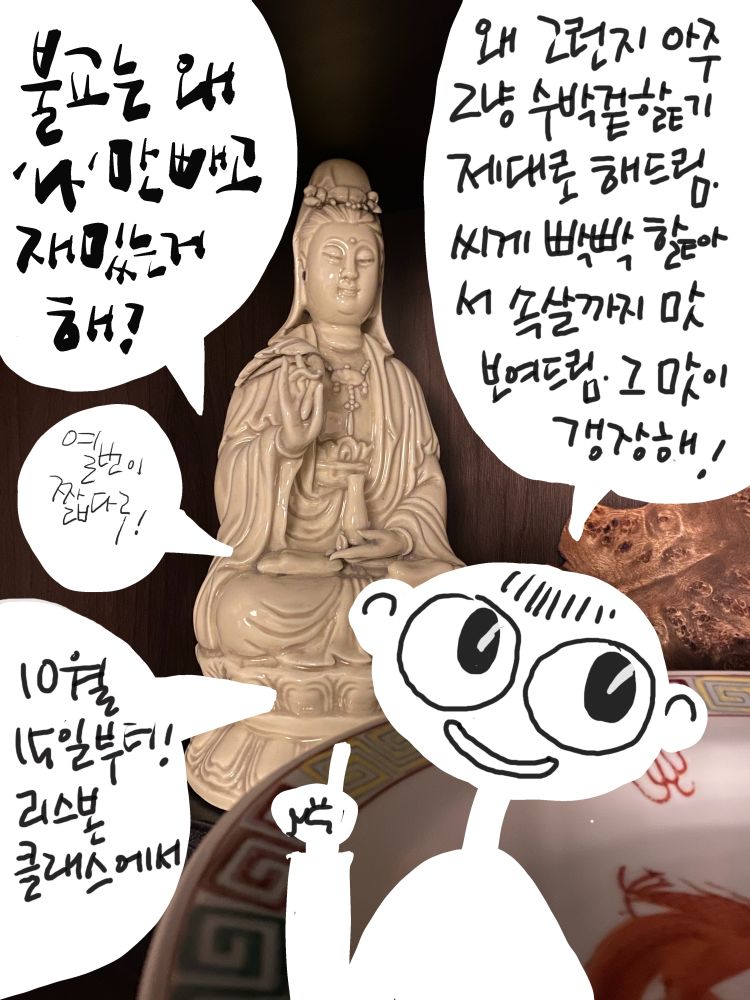 불교는 왜
'나'만 빼고
재밌는거
해?
왜 그런지 아주
그냥 수박겉핥기
제대로 해드림.
씨게 빡빡 핥아
서 속살까지 맛
보여드림. 그 맛이
갱장해!
열번이
짧다구!
10월
15일부터!
리스본
클래스에서